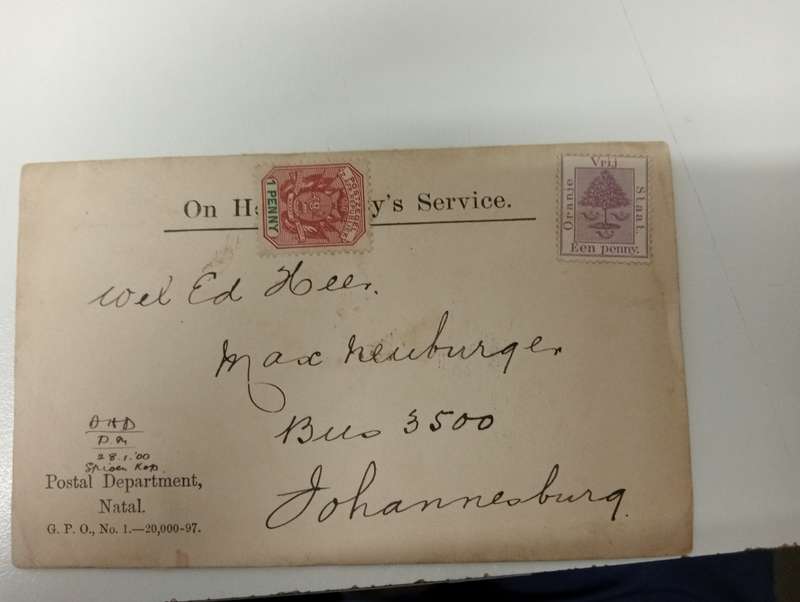 On H y's Service.
1 PENNY
POSTZEGEL
Vrij
Oranje
Staat
Een penny.
Wel Ed Heer.
Max Neuburger
Bus 3500
Johannesburg.
28.1.00
Spioen Kop.
Postal Department,
Natal.
G. P. O., No. 1.—20,000-97.